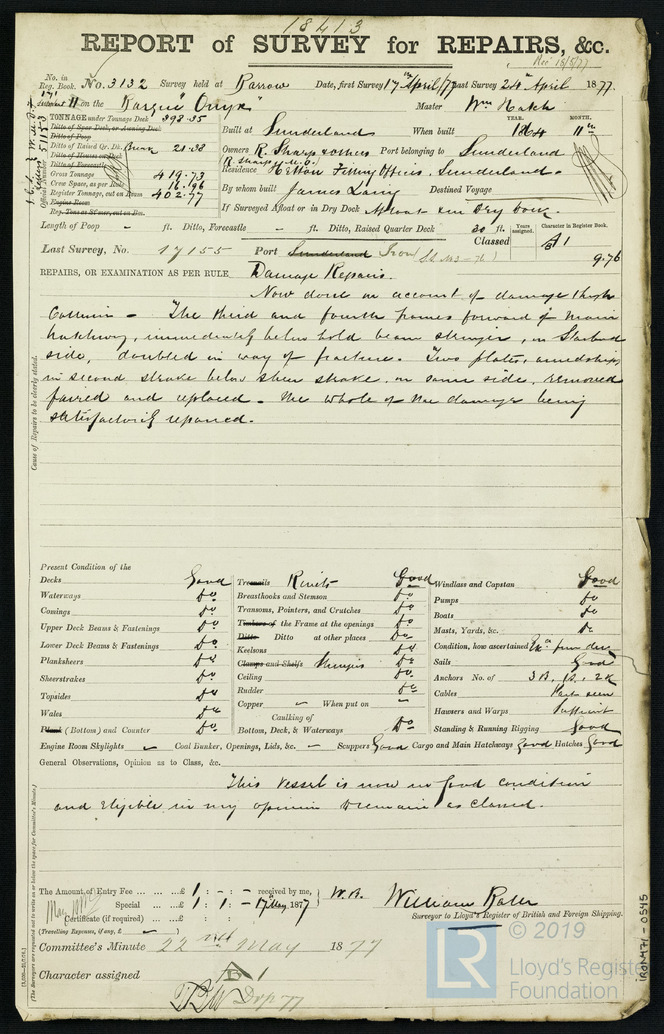 18413
REPORT of SURVEY for REPAIRS, &c.
Rec 18/5/77
No. in Reg. Book. No. 3132 Survey held at Barrow Date, first Survey 17th April/77 Last Survey 24th April 1877.
on the Barque "Onyx" Master Wm Hatch
TONNAGE under Tonnage Deck 398.35
Ditto of Spar Deck, or Awning Deck
Ditto of Poop
Ditto of Raised Qr. Dk. 21.38
Ditto of Houses on Deck
Ditto of Forecastle
Gross Tonnage 419.73
Crew Space, as per Rule 16.96
Register Tonnage, cut on Room 402.77
Engine Room
Reg. Tons as Steamer, cut on Bm.
YEAR. MONTH.
Built at Sunderland When built 1864 11th
Owners R. Sharp & others Port belonging to Sunderland
Residence Hetton Fitting Offices, Sunderland.
By whom built James Laing Destined Voyage
If Surveyed Afloat or in Dry Dock Afloat & in Dry Dock.
Length of Poop - ft. Ditto, Forecastle - ft. Ditto, Raised Quarter Deck 30 ft.
Years assigned. Character in Register Book.
Classed A1
9.76
Last Survey, No. 17155 Port Sunderland Iron
REPAIRS, OR EXAMINATION AS PER RULE Damage Repairs.
Cause of Repairs to be clearly stated.
Now done on account of damage through
Collision - The third and fourth frames forward of main
hatchway, immediately below hold beam stringer, on Starboard
side, doubled in way of fracture. Two plates, amidships,
in second strake below sheer strake, on same side, removed
faired and replaced. The whole of the damage being
satisfactorily repaired.
Present Condition of the
Decks Good
Waterways Do
Comings Do
Upper Deck Beams & Fastenings Do
Lower Deck Beams & Fastenings Do
Planksheers Do
Sheerstrakes Do
Topsides Do
Wales Do
Plank (Bottom) and Counter Do
Treenails Rivets Good
Breasthooks and Stemson Do
Transoms, Pointers, and Crutches Do
Timbers of the Frame at the openings Do
Ditto Ditto at other places Do
Keelsons Do
Clamps and Shelfs Stringers Do
Ceiling Do
Rudder Do
Copper - When put on -
Caulking of
Bottom, Deck, & Waterways Do
Windlass and Capstan Good
Pumps Do
Boats Do
Masts, Yards, &c. Do
Condition, how ascertained from deck
Sails Good
Anchors No. of 3 B, 1 S, 2 K
Cables Part seen
Hawsers and Warps Sufficient
Standing & Running Rigging Good
Engine Room Skylights - Coal Bunker, Openings, Lids, &c. - Scuppers Good Cargo and Main Hatchways Good Hatches Good
General Observations, Opinion as to Class, &c.
This Vessel is now in good condition
and Eligible in my opinion to remain as classed.
The Amount of Entry Fee ... £ 1 : - : - received by me,
Special ... £ 1 : 1 : - 17th May 1877
W.B.
Certificate (if required) ... £ : :
(Travelling Expenses, if any, £ )
Surveyor to Lloyd's Register of British and Foreign Shipping.
Committee's Minute 22nd May 1877
Character assigned A1
IRON471-0545
© 2019
LR
Lloyd's Register
Foundation